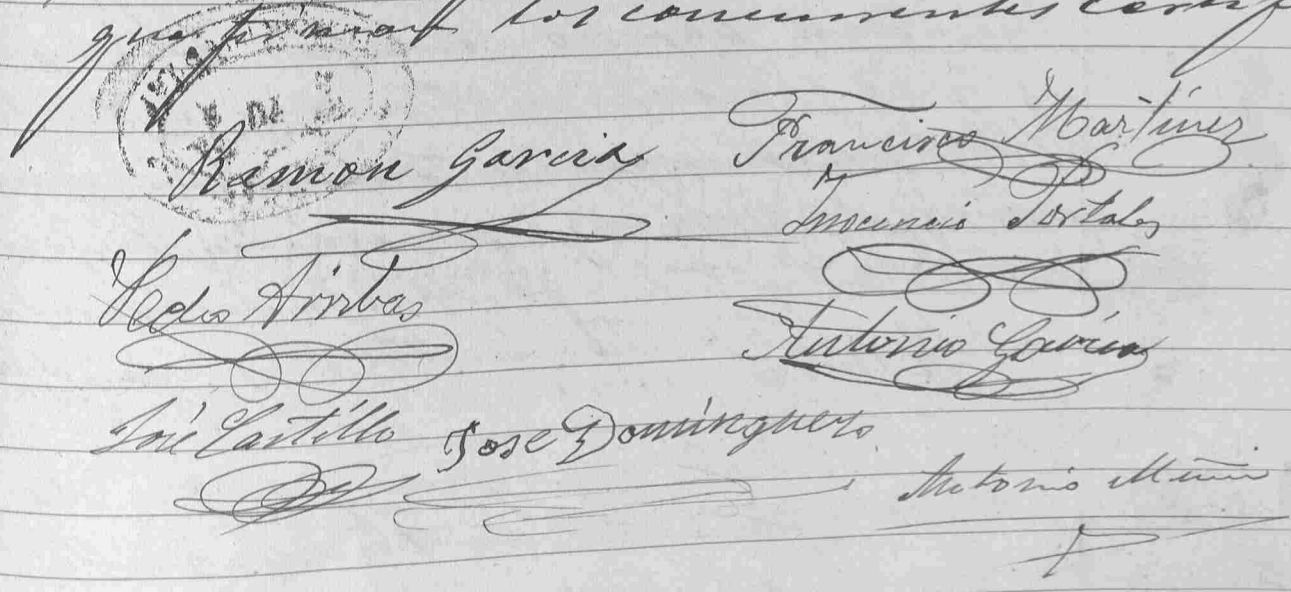 que firman los concurrentes certif
Ramon Garcia
Francisco Martinez
Inocencio Portales
Pedro Arribas
Antonio Garcia
José Castillo
Jose Dominguez
Antonio